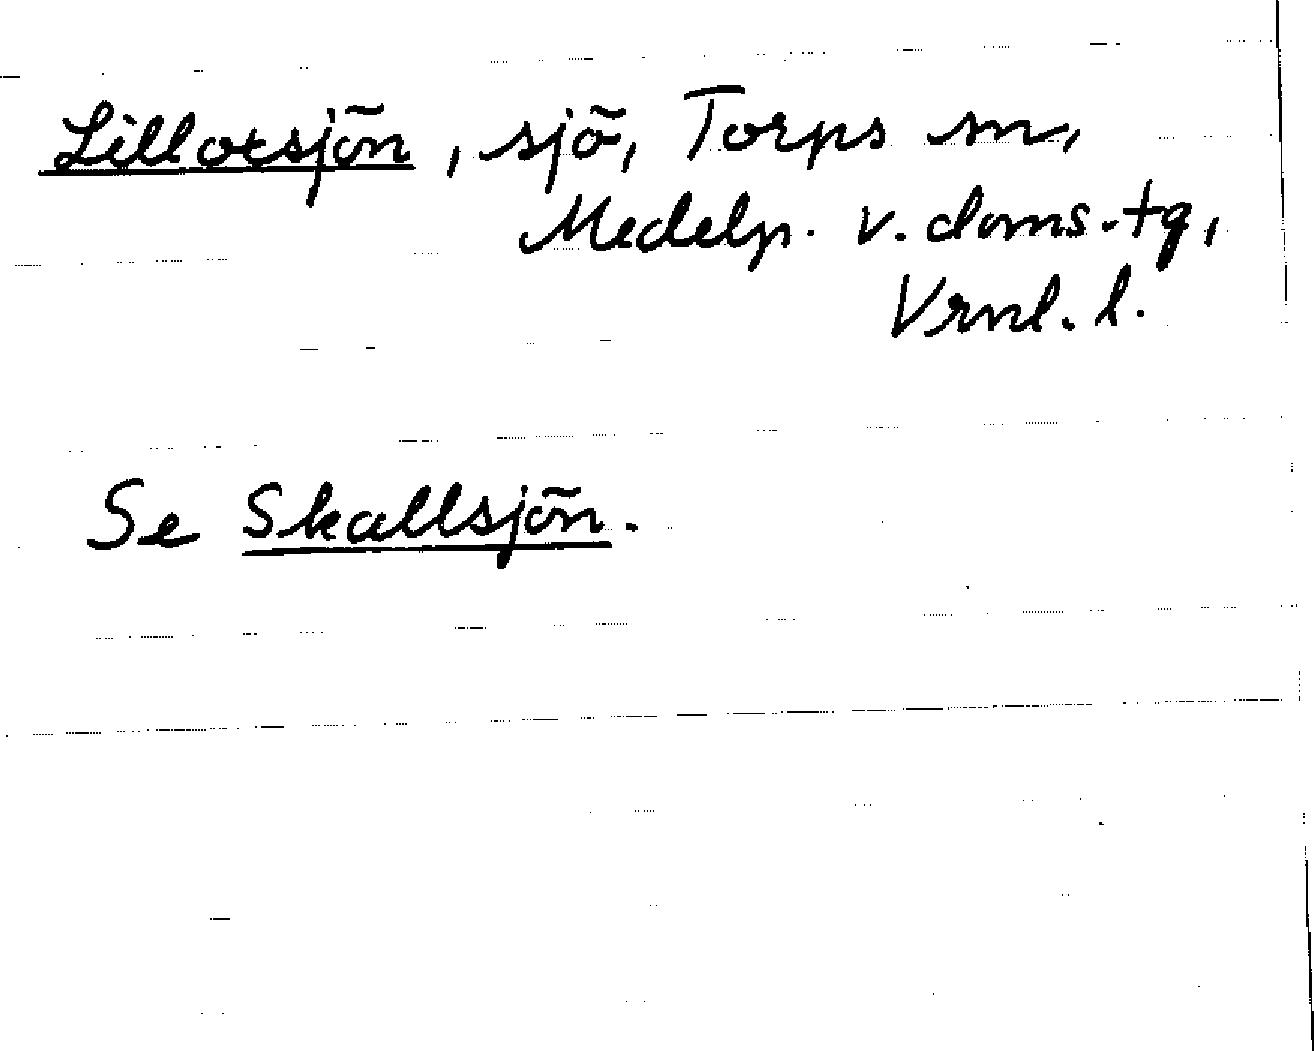 Lillotsjön, sjö, Torps sn,
Medelp. v. doms.-tg,
Vrnl. l.
Se Skallsjön.